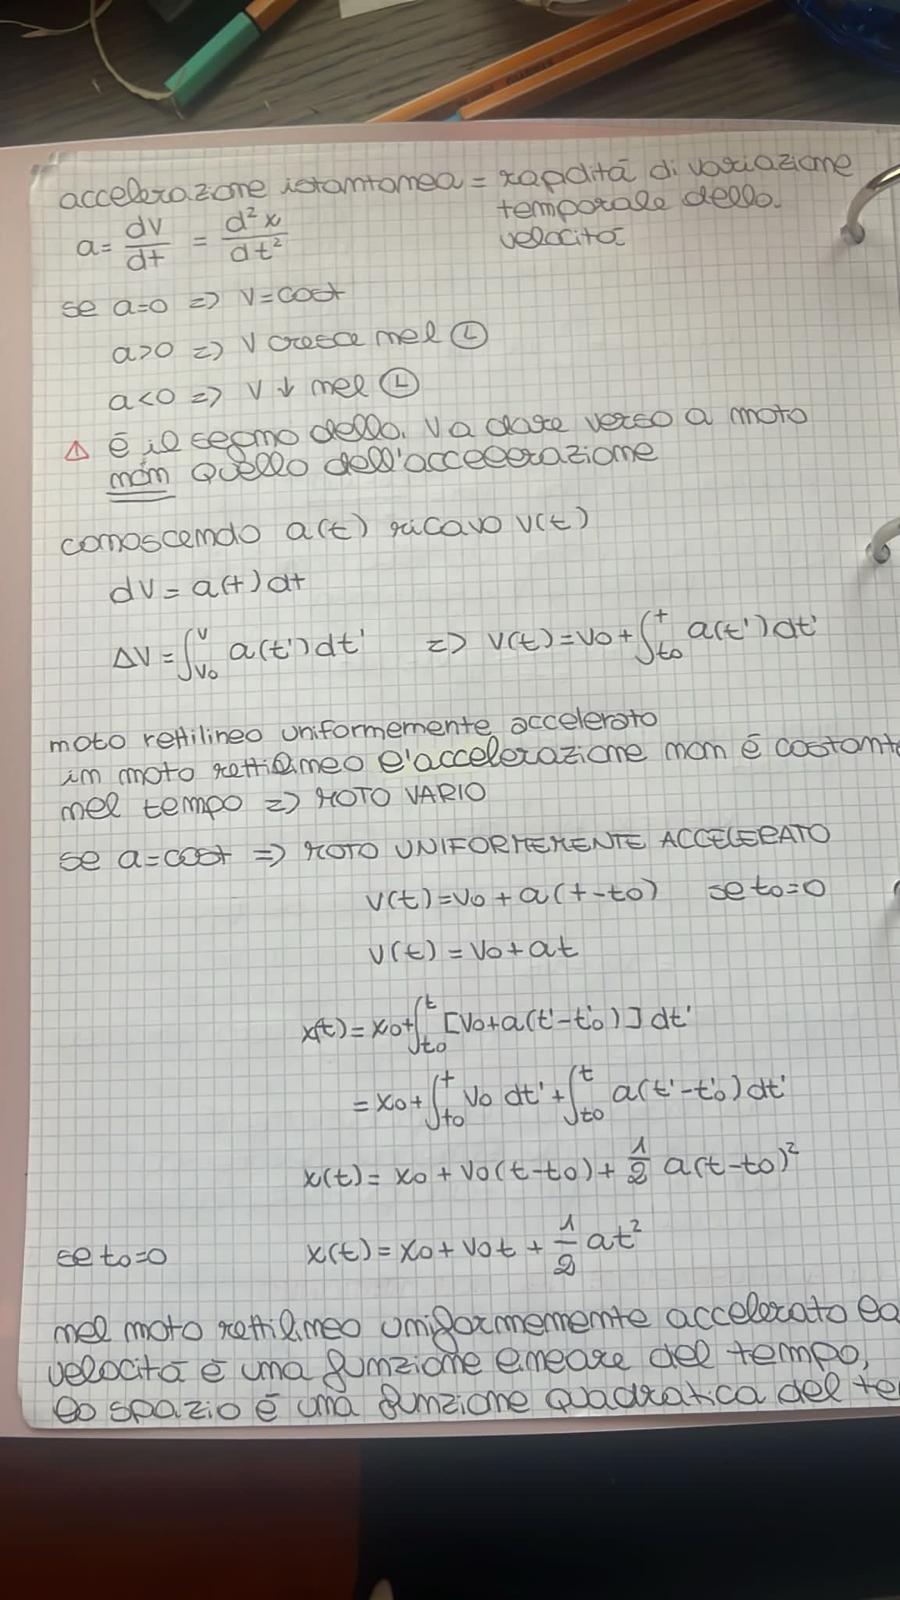 accelerazione istantanea = rapidità di variazione
temporale della
velocità
a = dv/dt = d²x/dt²
se a=0 => v=cost
a>0 => v cresce nel Ⓛ
a<0 => v ↓ nel Ⓛ
⚠ è il segno della v a dare verso a moto
non quello dell'accelerazione
conoscendo a(t) ricavo v(t)
dv = a(t)dt
Δv = ∫v₀^v a(t')dt' => v(t)=v₀+∫t₀^t a(t')dt'
moto rettilineo uniformemente accelerato
in moto rettilineo l'accelerazione non è costante
nel tempo => MOTO VARIO
se a=cost => MOTO UNIFORMEMENTE ACCELERATO
v(t)=v₀+a(t-t₀) se t₀=0
v(t)=v₀+at
x(t)=x₀+∫t₀^t [v₀+a(t'-t'₀)]dt'
=x₀+∫t₀^t v₀ dt'+∫t₀^t a(t'-t'₀)dt'
x(t)= x₀+v₀(t-t₀)+1/2 a(t-t₀)²
se t₀=0 x(t)=x₀+v₀t+1/2 at²
nel moto rettilineo uniformemente accelerato la
velocità è una funzione lineare del tempo,
lo spazio è una funzione quadratica del te